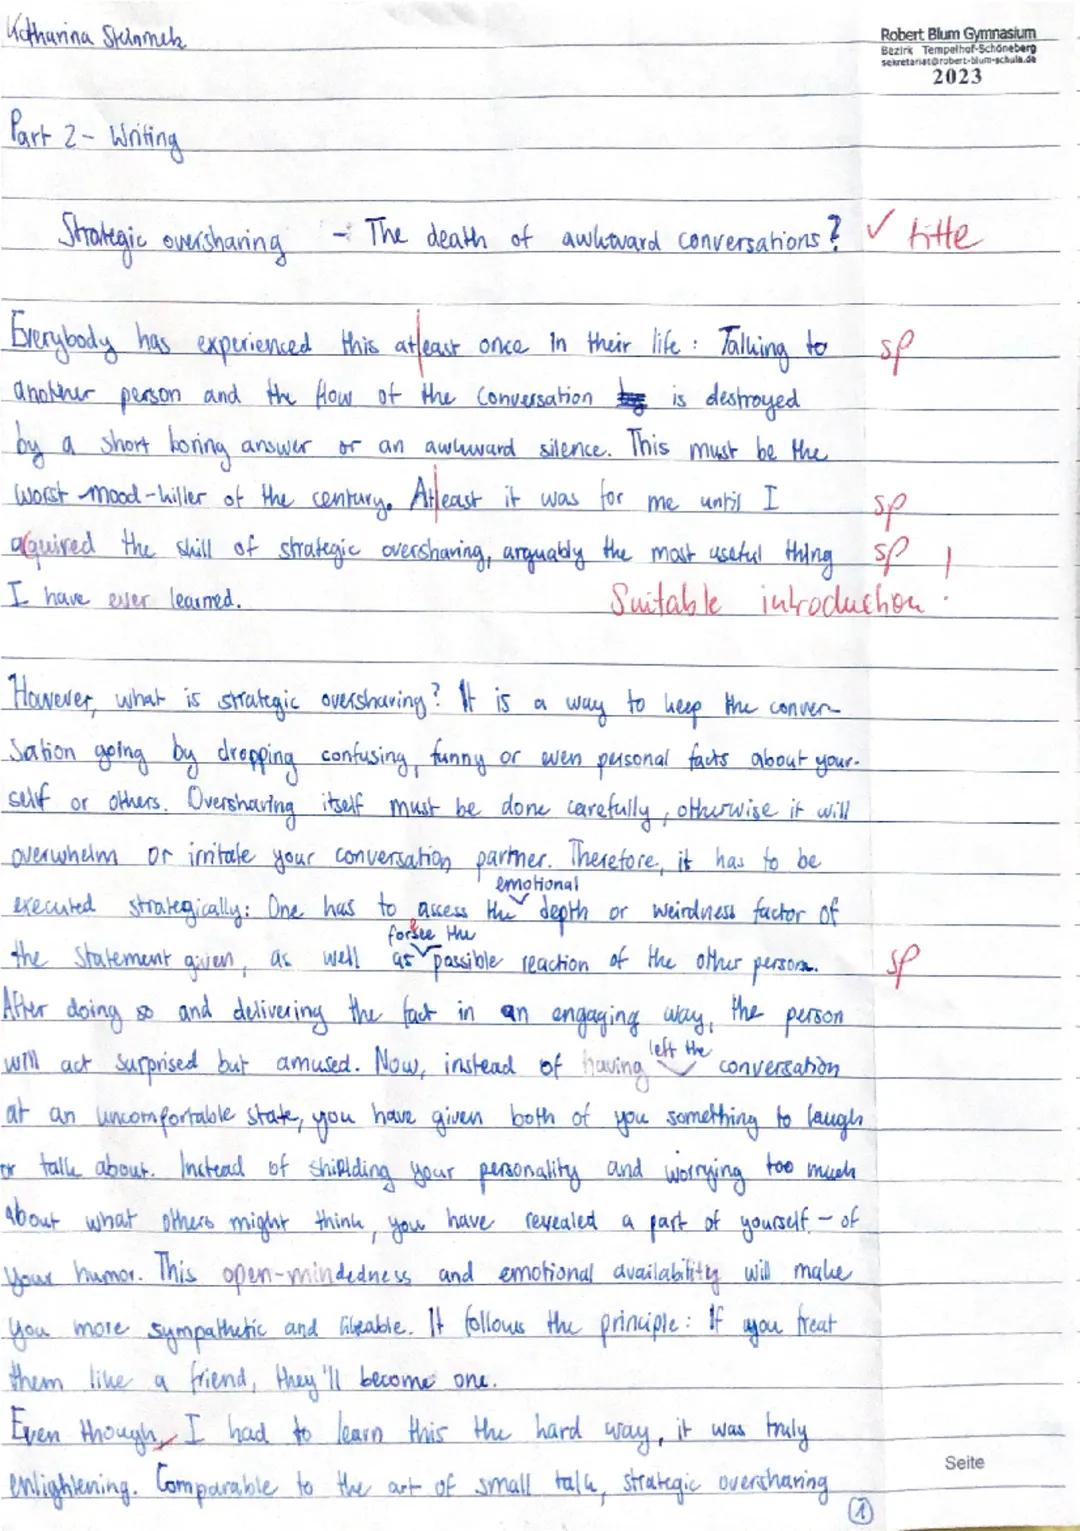 Katharina Steinmetz
Robert Blum Gymnasium
Bezirk Tempelhof-Schöneberg
sekretariat@robert-blum-schule.de
2023
Part 2 - Writing
Strategic oversharing - The death of awkward conversations? ✓ title
Everybody has experienced this atleast once in their life: Talking to sp
another person and the flow of the conversation is destroyed
by a short boring answer or an awkward silence. This must be the
worst mood-killer of the century. Atleast it was for me until I sp
aquired the skill of strategic oversharing, arguably the most useful thing sp
I have ever learned. Suitable introduction!
However, what is strategic oversharing? It is a way to keep the conver-
sation going by dropping confusing, funny or even personal facts about your-
self or others. Oversharing itself must be done carefully, otherwise it will
overwhelm or irritate your conversation partner. Therefore, it has to be
emotional
executed strategically: One has to access the depth or weirdness factor of
forsee the
the statement given, as well as possible reaction of the other person. sp
After doing so and delivering the fact in an engaging way, the person
left the
will act surprised but amused. Now, instead of having conversation
at an uncomfortable state, you have given both of you something to laugh
or talk about. Instead of shielding your personality and worrying too much
about what others might think, you have revealed a part of yourself - of
your humor. This open-mindedness and emotional availability will make
you more sympathetic and likeable. It follows the principle: If you treat
them like a friend, they'll become one.
Even though, I had to learn this the hard way, it was truly
enlightening. Comparable to the art of small talk, strategic oversharing
Seite
1